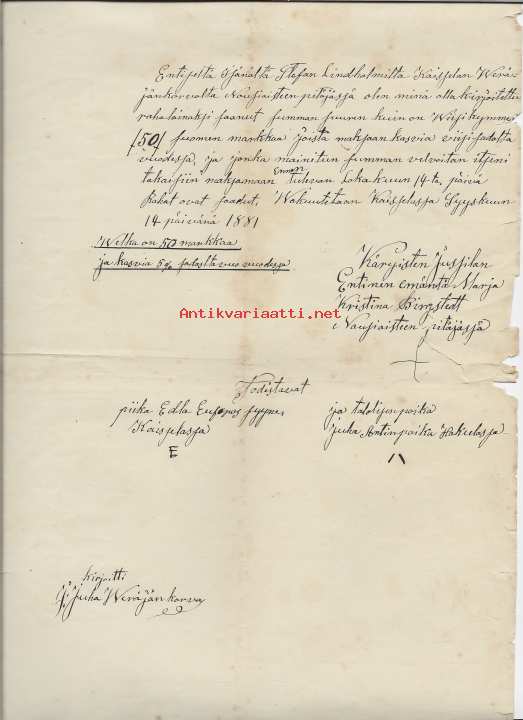 Entiseltä isänältä Stefan Lindholmilta Kaisselan Werä-
jänkorvalta Nousiaisten pitäjässä olen minä alla kirjoitettu
raha lainaksi saanut summan suuren kuin on Wiisikymmen
/50/ suomen markkaa Joista maksaan kasvia viisi sadalta
vuodessa, ja jonka mainitun summan velvoitan itseni
takaisiin maksamaan ennen tulevan Lokakuun 14-ta päivä
Rahat ovat saadut, Wakuutetaan Kaisselassa Syyskuun
14 päivänä 1881
Welka on 50 markkaa
ja kasvia 5% sadalta vuo vuodessa
Kärysten Jussilan
Entinen emäntä Marja
Kristina Birgstedt
Nousiaisten pitäjässä
Antikvariaatti.net
Todistavat
piika Edla
Kaisselassa
E
ja talolisen poika
Juha Antinpoika Hakulassa
Kirjoitti
J. Juha Weräjänkorva